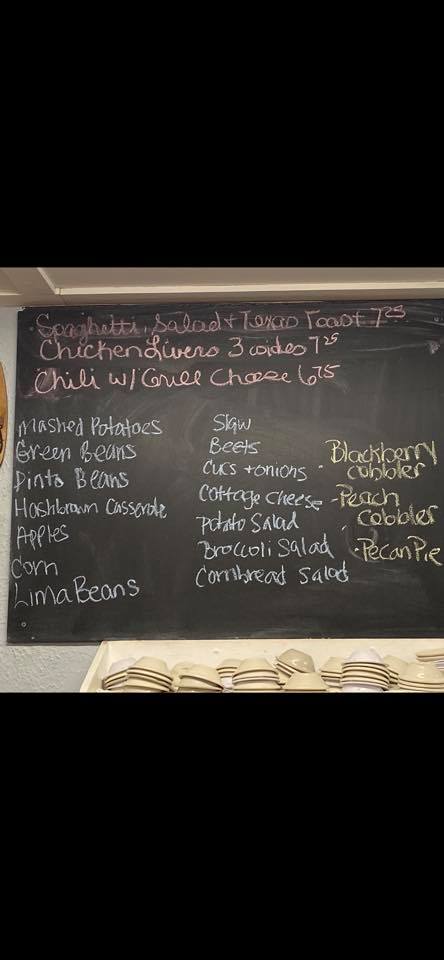 Spaghetti, Salad + Texas Toast 7 25
Chicken Livers 3 sides 7 25
Chili w/ Grill Cheese 6 75
Mashed Potatoes
Green Beans
Pinto Beans
Hashbrown Casserole
Apples
Corn
Lima Beans
Slaw
Beets
Cucs + onions
Cottage Cheese
Potato Salad
Broccoli Salad
Cornbread Salad
Blackberry
cobbler
- Peach
cobbler
· Pecan Pie